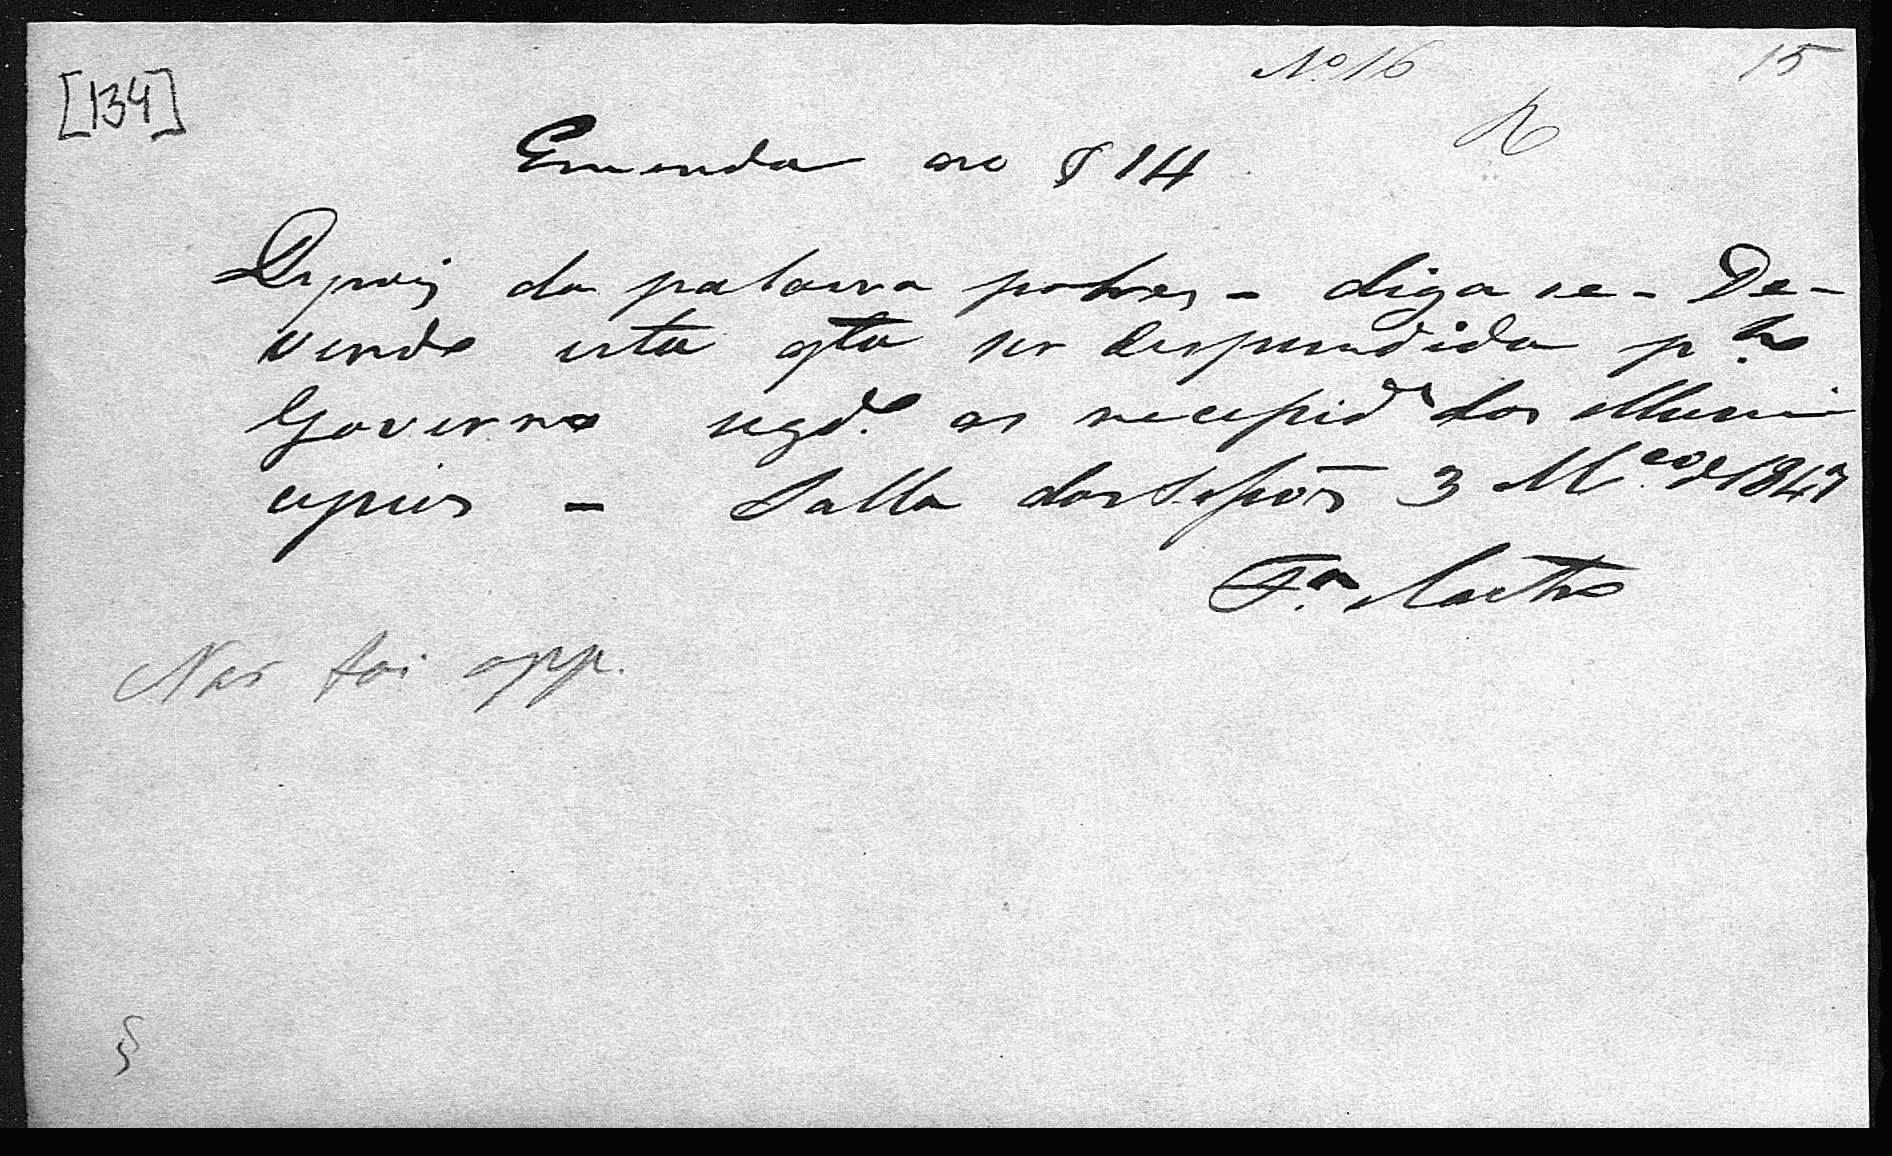 Nº 16 15
[134] R
Emenda ao § 14
Depois da palavra pobres - diga se - De-
vendo esta qta ser despendida p.lo
Governo segd.e as necessid.es dos Muni
cipios - Salla das Sessões 3 M.ço de 1847
F.a
Não foi app.